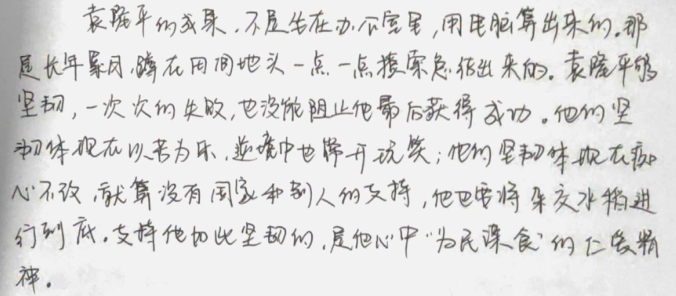 袁隆平的成果，不是坐在办公室里，用电脑算出来的。那
是长年累月，蹲在田间地头一点一点摸索总结出来的。袁隆平够
坚韧，一次次的失败，也没能阻止他最后获得成功。他的坚
韧体现在以苦为乐，逆境中也能开玩笑；他的坚韧体现在痴
心不改，就算没有国家和别人的支持，他也要将杂交水稻进
行到底。支撑他如此坚韧的，是他心中“为民谋食”的仁爱精
神。